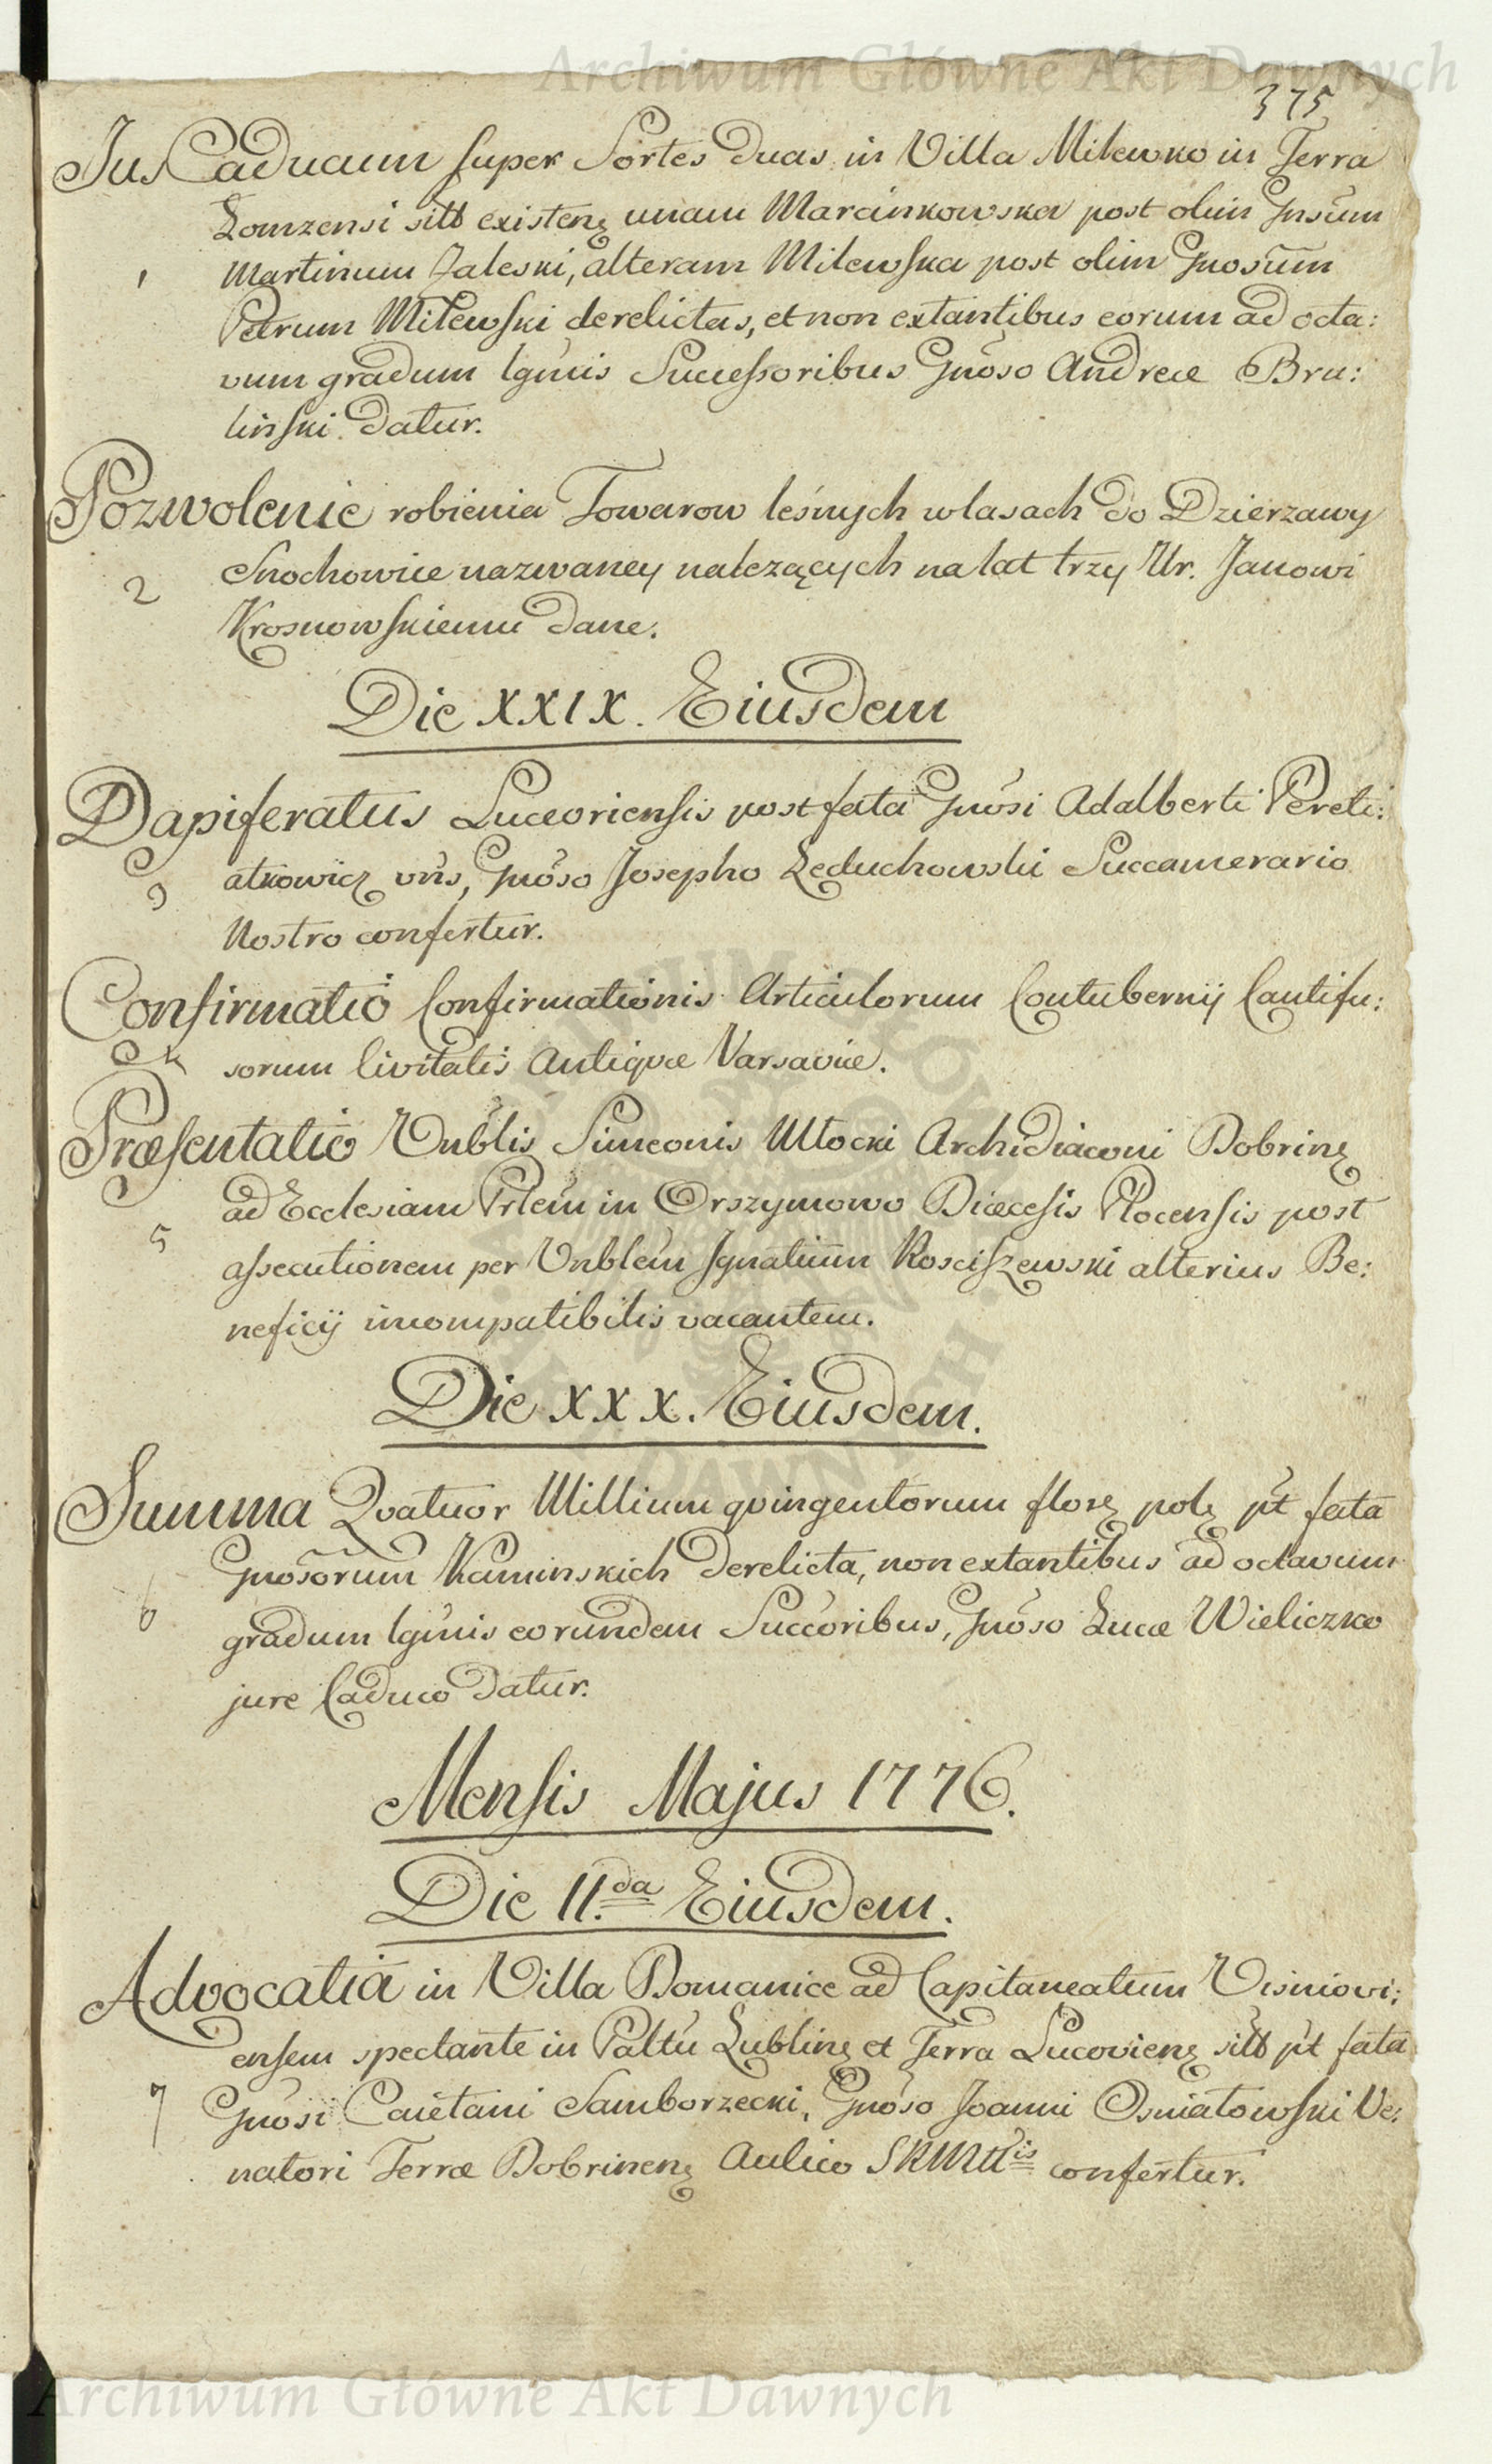 Archiwum Główne Akt Dawnych
375
Jus Caducum super Sortes duas in Villa Milewko in Terra
Łomzensi sitt existenꝫ unam Marcinkowska post olim Gnsum
1 Martinum Zaleski, alteram Milewska post olim Gnosum
Petrum Milewski derelictas, et non extantibus eorum ad octa:
vum gradum lgmis Successoribus Gnoso Andreæ Bru:
linski datur.
Pozwolenie robienia Towarow leśnych wlasach do Dzierzawy
2 Snochowice nazwaney nalezących na lat trzy Ur. Janowi
Krosnowskiemu dane.
Die XXIX. Eiusdem
Dapiferatus Luceoriensis post fata Gnosi Adalberti Pereti:
3 atkowicz vns, Gnoso Josepho Leduchowski Succamerario
Nostro confertur.
Confirmatio Confirmationis Articulorum Contubernij Cantifu:
4 sorum Civitatis Antiquæ Varsaviæ.
Præsentatio Vnblis Simeonis Młocki Archidiaconi Dobrinꝫ
ad Ecclesiam Prlem in Orszymowo Diæcesis Plocensis post
5 assecutionem per Vnblem Ignatium Kosciszewski alterius Be:
neficij incompatibilis vacantem.
Die XXX. Eiusdem.
Summa Qvatuor Millium qvingentorum florꝫ polꝫ pt fata
Gnosorum Kaminskich derelicta, non extantibus ad octavum
6 gradum lgmis eorundem Succoribus, Gnoso Lucæ Wieliczko
jure Caduco datur.
Mensis Majus 1776.
Die II.da Eiusdem.
Advocatia in Villa Domanice ad Capitaneatum Visniovi:
ensem spectante in Paltu Lublinꝫ et Terra Lucovienꝫ sitt pt fata
7 Gnosi Caietani Samborzecki, Gnoso Joanni Osmiatowski Ve:
natori Terræ Dobrinenꝫ Aulico SRMttis confertur.
Archiwum Główne Akt Dawnych